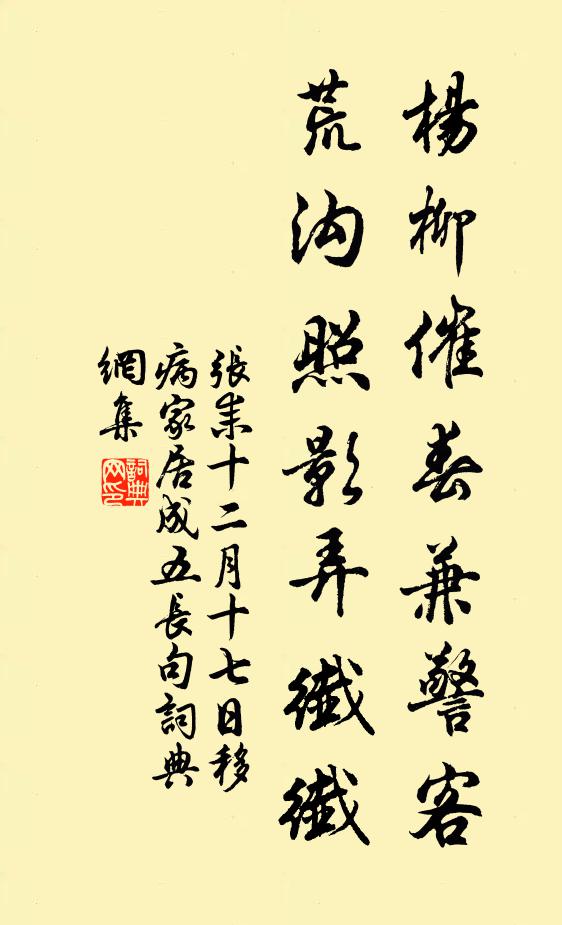 楊柳催春兼警客
荒沟照影弄纖纖
張耒十二月十七日移
病家居成五長句詞典
網集
詞典
网印